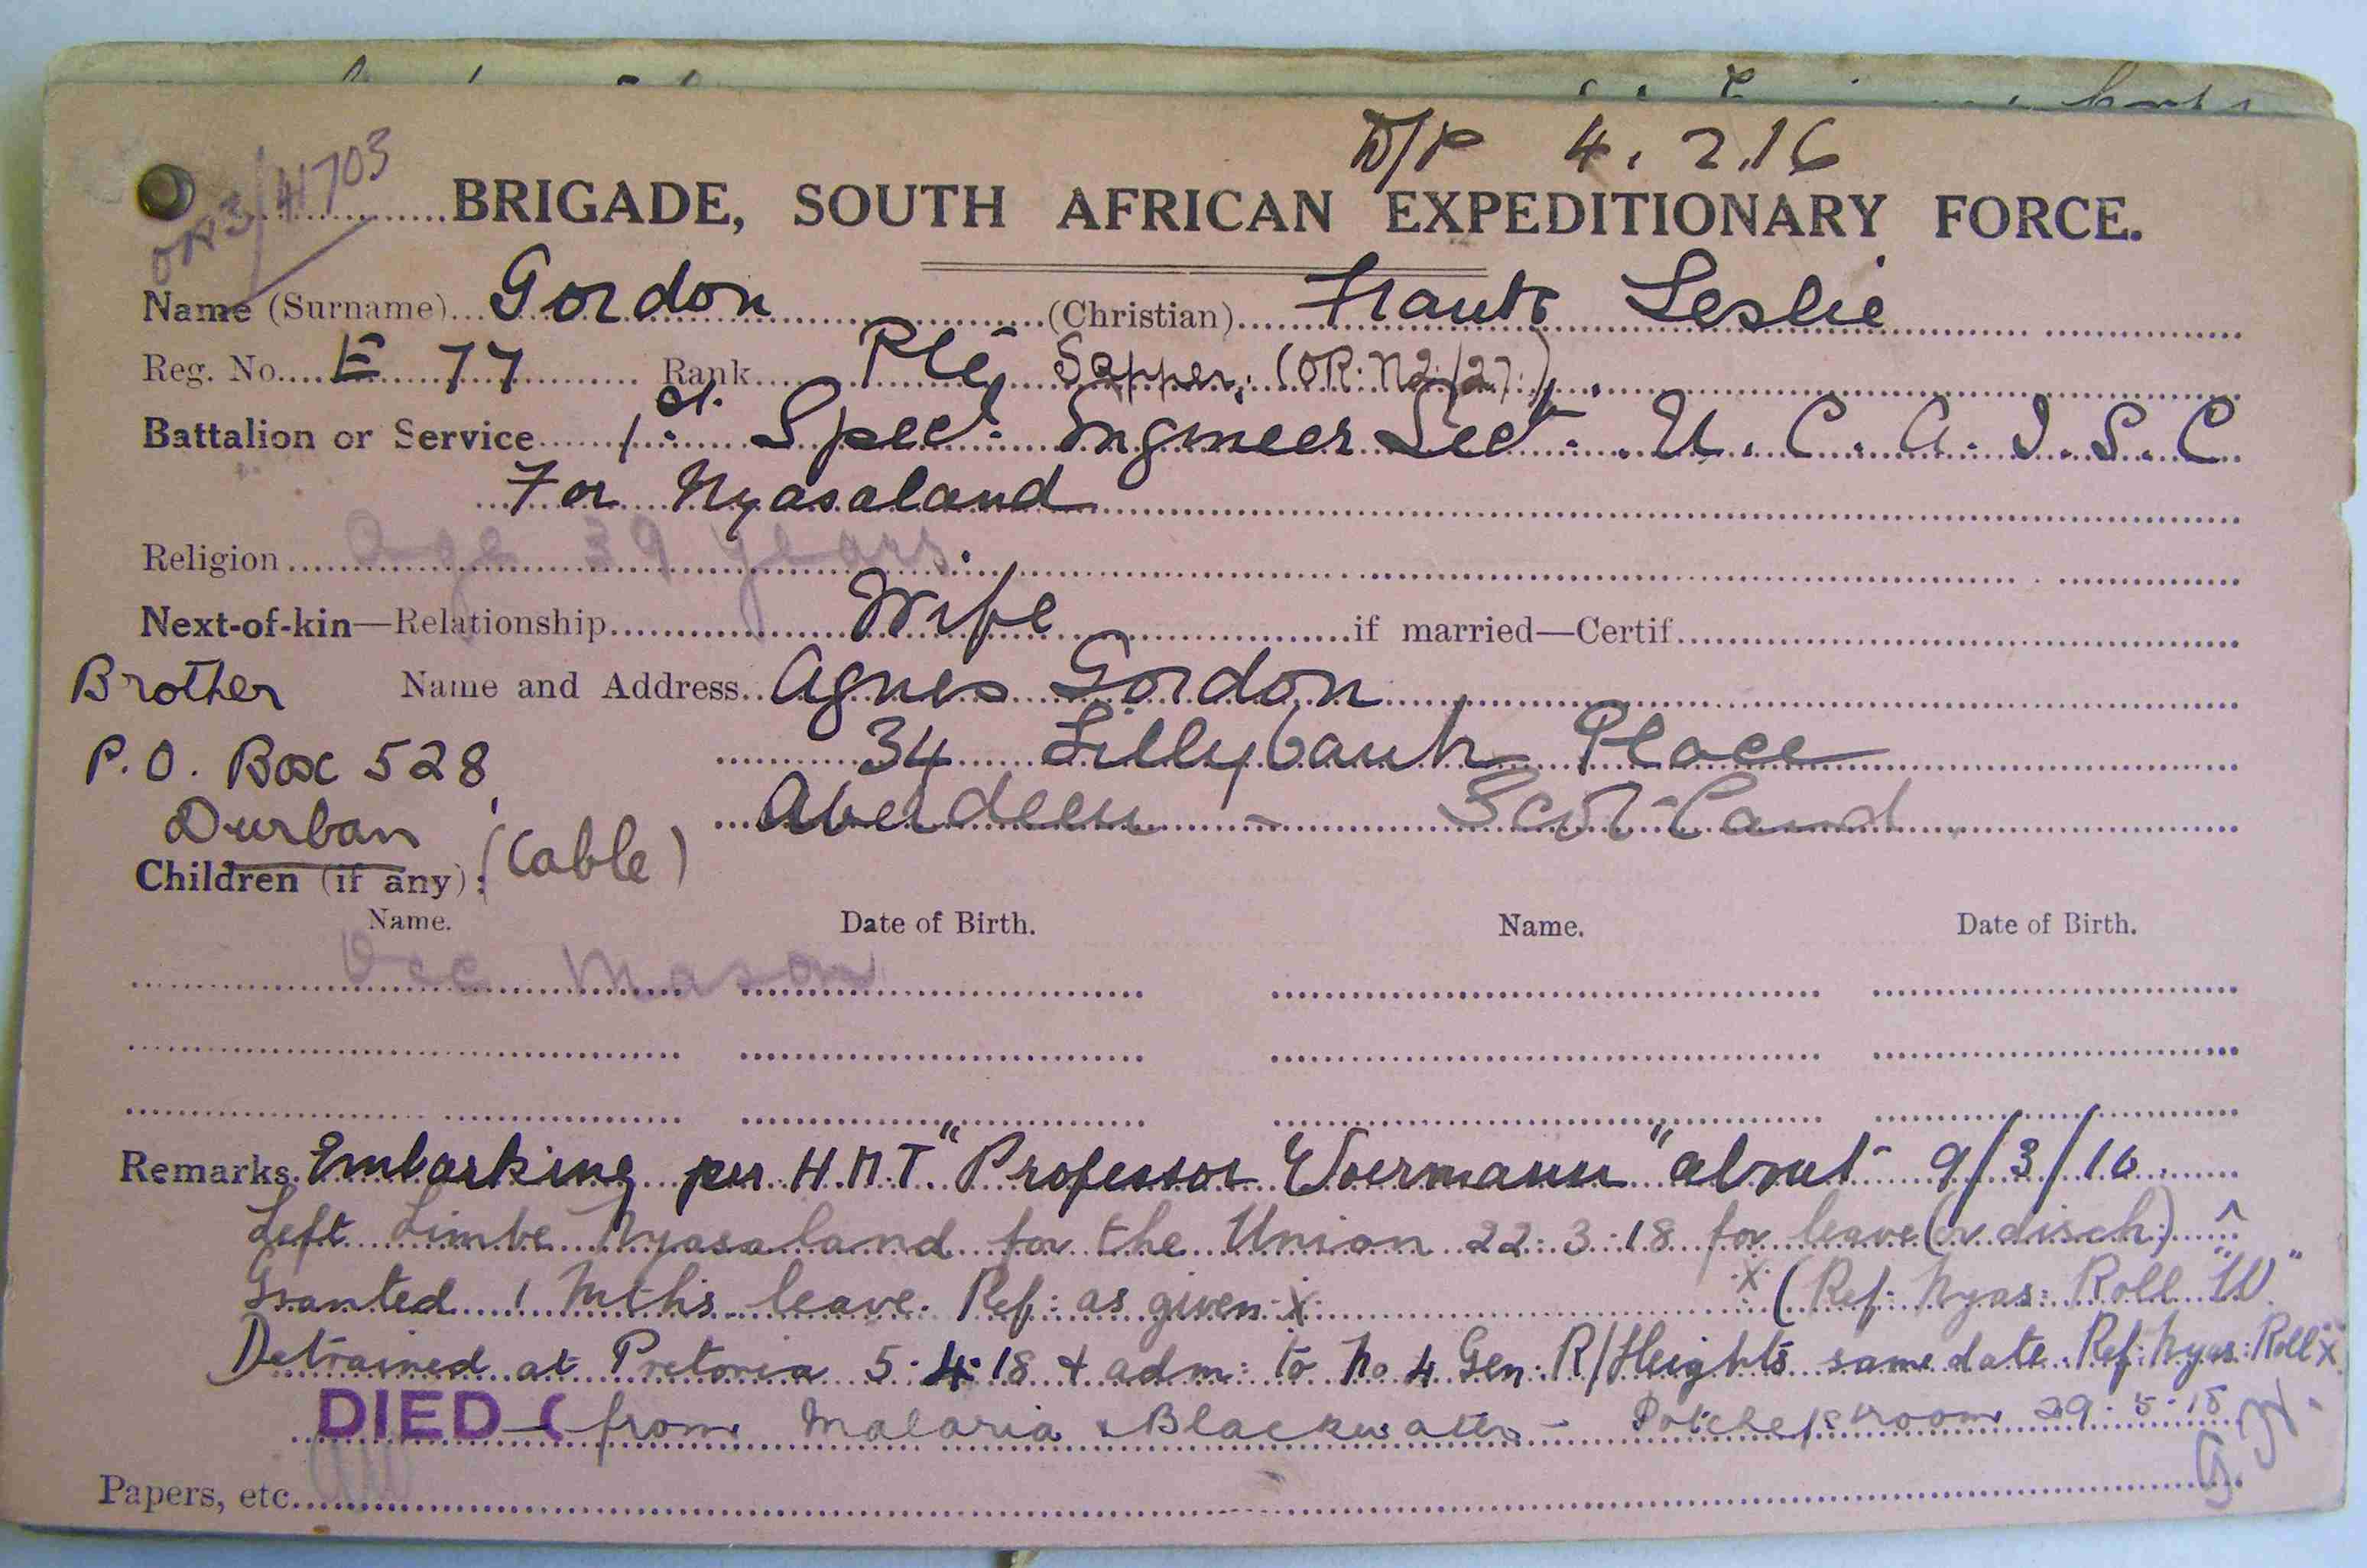 D/P 4.2.16
OR3/41703
BRIGADE, SOUTH AFRICAN EXPEDITIONARY FORCE.
Name (Surname) Gordon (Christian) Frank Leslie
Reg. No. E 77 Rank Pte Sapper. (OR: N2/27)
Battalion or Service 1st Spec: Engineer Sect. U.C.A.I.S.C
For Nyasaland
Religion Age 39 years
Next-of-kin—Relationship Wife if married—Certif.
Brother Name and Address Agnes Gordon
P.O. Box 528, 34 Lillybank Place
Durban Aberdeen - Scotland
(Cable)
Children (if any):
Name. Date of Birth. Name. Date of Birth.
Occ Mason
Remarks. Embarking per H.M.T. "Professor Woermann" about 9/3/16
Left Limbe Nyasaland for the Union 22.3.18 for leave (or disch:)
Granted 1 mths leave. Ref: as given x x (Ref: Nyas: Roll "W"
Detrained at Pretoria 5.4.18 & adm: to No 4 Gen: R/Heights same date. Ref: Nyas: Roll x
DIED (from Malaria & Blackwater - Potchefstroom 29.5.18
Papers, etc.